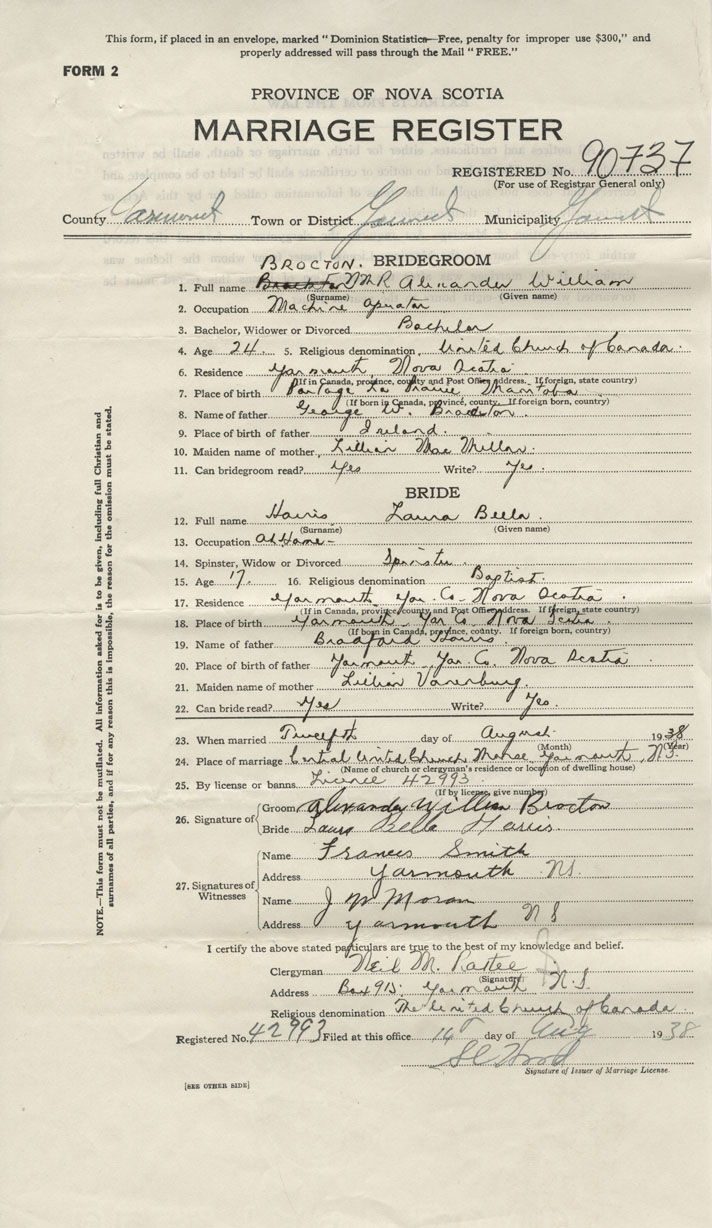 This form, if placed in an envelope, marked "Dominion Statistics—Free, penalty for improper use $300," and
properly addressed will pass through the Mail "FREE."
FORM 2
PROVINCE OF NOVA SCOTIA
MARRIAGE REGISTER
REGISTERED No. 90737
(For use of Registrar General only)
County Yarmouth Town or District Yarmouth Municipality Yarmouth
BRIDEGROOM
BROCTON.
1. Full name MR Alexander William
(Surname) (Given name)
2. Occupation Machine Operator
3. Bachelor, Widower or Divorced Bachelor
4. Age 24 5. Religious denomination United Church of Canada.
6. Residence Yarmouth Nova Scotia
(If in Canada, province, county and Post Office address. If foreign, state country)
7. Place of birth Portage La Prairie Manitoba
(If born in Canada, province, county. If foreign born, country)
8. Name of father George W.
9. Place of birth of father Ireland.
10. Maiden name of mother Lillian Mac Millan.
11. Can bridegroom read? Yes Write? Yes.
BRIDE
12. Full name Harris Laura Bella
(Surname) (Given name)
13. Occupation At Home-
14. Spinster, Widow or Divorced Spinster
15. Age 17. 16. Religious denomination Baptist.
17. Residence Yarmouth Yar. Co. Nova Scotia
(If in Canada, province, county and Post Office address. If foreign, state country)
18. Place of birth Yarmouth Yar Co Nova Scotia
(If born in Canada, province, county. If foreign born, country)
19. Name of father Bradford Harris
20. Place of birth of father Yarmouth Yar. Co. Nova Scotia
21. Maiden name of mother Lillian
22. Can bride read? Yes Write? Yes.
23. When married Twelfth day of August 1938
(Month) (Year)
24. Place of marriage Central United Church Manse Yarmouth, N.S.
(Name of church or clergyman's residence or location of dwelling house)
25. By license or banns Licence 42993
(If by license, give number)
26. Signature of
Groom Alexander William Brocton
Bride Laura Bella Harris
27. Signatures of Witnesses
Name Frances Smith
Address Yarmouth N.S.
Name J W Moran
Address Yarmouth N S
I certify the above stated particulars are true to the best of my knowledge and belief.
Clergyman Neil M.
(Signature)
Address Box 915. Yarmouth N.S.
Religious denomination The United Church of Canada
Registered No. 42993 Filed at this office 16 day of Aug 1938
Signature of Issuer of Marriage License.
[SEE OTHER SIDE]
NOTE.—This form must not be mutilated. All information asked for is to be given, including full Christian and
surnames of all parties, and if for any reason this is impossible, the reason for the omission must be stated.